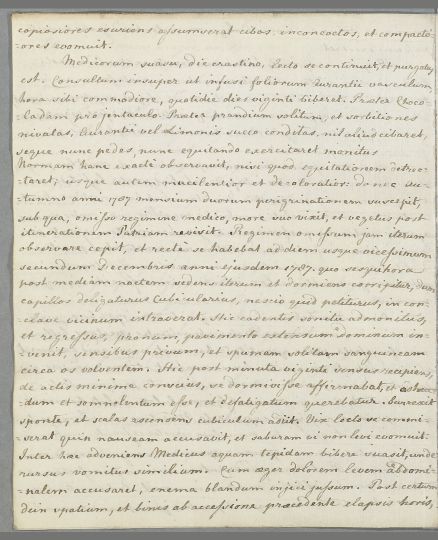 copiosiores esuriens assumserat cibos, inconcoctos, et compacti-
ores evomuit.
Medicorum suasu, die crastino, lecto se continuit, et purgatus
est. Consultum insuper ut infusi foliorum Aurantii vasculum,
hora sibi commodiore, quotidie dies viginti biberet. Praeter Choco-
ladam pro jentaculo. Praeter prandium solitum, et sorbitiones
nivatas, Aurantii vel Limonis succo conditas, nil aliud cibaret,
seque nunc pedes, nunc equitando exercitaret monitus
Normam hanc exacte observavit, nisi quod equitationem detrec-
taret; usque autem macilentior et decoloratior: donec Au-
tumno anni 1787 mensium duorum perigrinationem suscepit,
sub qua, omisso regimine medico, more suo vixit, et vegetus post
itinerationem Patriam revisit. Regimen omissum jam iterum
observare cepit, et recte se habebat ad diem usque vicessimum
secundum Decembris anni ejusdem 1787. quo sesquihora
post mediam noctem sedens iterum et dormiens corripitur, dum
capillos deligaturus Cubicularius, nescio quid petiturus, in con-
clave vicinum intraserat. Hic cadentis sonitu admonitus,
et regressus, pronum, pavimento extensum dominum in-
venit, sensibus privum, et spumam solitam sanguineam
circa os volventem. Hic post minuta viginti sensus recipiens,
de actis minime conscius, se dormivisse affirmabat, et
dum et somnolentum esse, et defatigatum querebatur. Surrexit
sponte, et scalas ascensens cubiculum adiit. Vix lecto se commi-
serat quin nauseam accusavit, et saburam vi non levi evomuit.
Inter haec adveniens Medicus aquam tepidam bibere suasit, unde
rursus vomitus similium. Cum aeger dolorem levem abdomi-
nalem accusaret, enema blandum injici jussum. Post certum
dein spatium, et binis ab accessione praecedente elapsis horis,